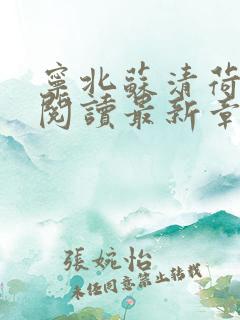 寧北蘇清荷
閱讀最新章
張婉怡
未任同意禁止转载